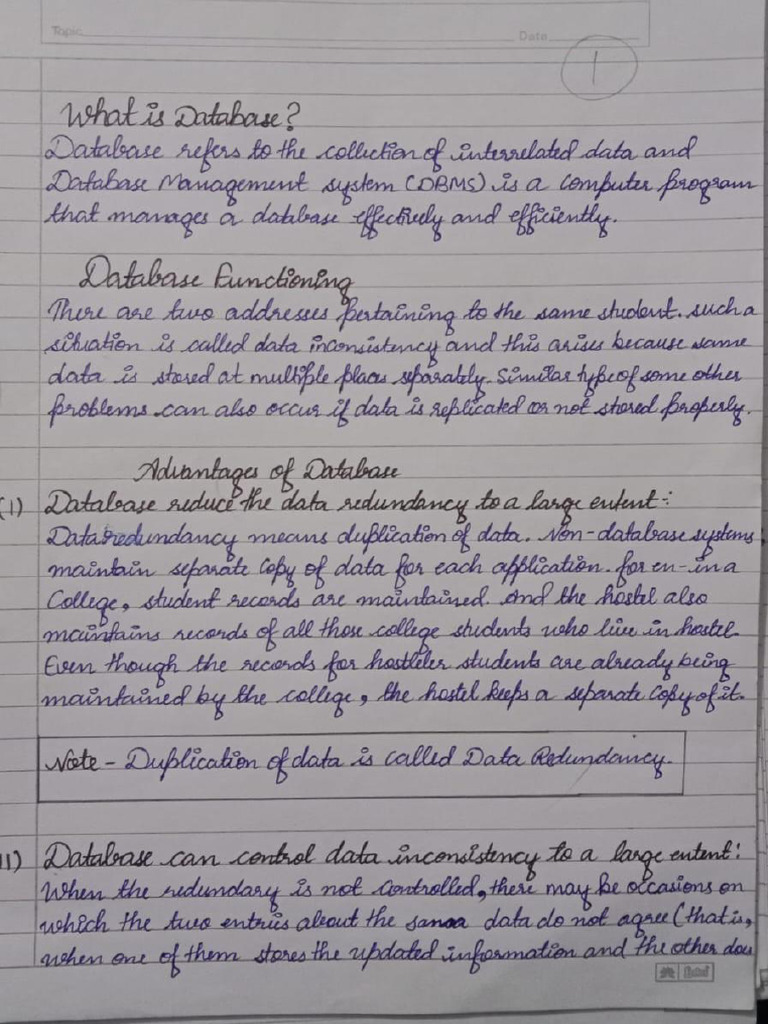 Topic Date
1
What is Database?
Database refers to the collection of interrelated data and
Database Management system (DBMS) is a computer program
that manages a database effectively and efficiently.
Database Functioning
There are two addresses pertaining to the same student. such a
situation is called data inconsistency and this arises because same
data is stored at multiple places separately. Similar type of some other
problems can also occur if data is replicated or not stored properly.
Advantages of Database
(1) Database reduce the data redundancy to a large entent:
Data redundancy means duplication of data. Non-database systems
maintain separate copy of data for each application. for en- in a
College, student records are maintained. And the hostel also
maintains records of all those college students who live in hostel.
Even though the records for hostleler students are already being
maintained by the college, the hostel keeps a separate copy of it.
Note - Duplication of data is called Data Redundancy.
11) Database can control data inconsistency to a large entent:
When the redundary is not controlled, there may be occasions on
which the two entries about the data do not agree (that is,
when one of them stores the updated information and the other does